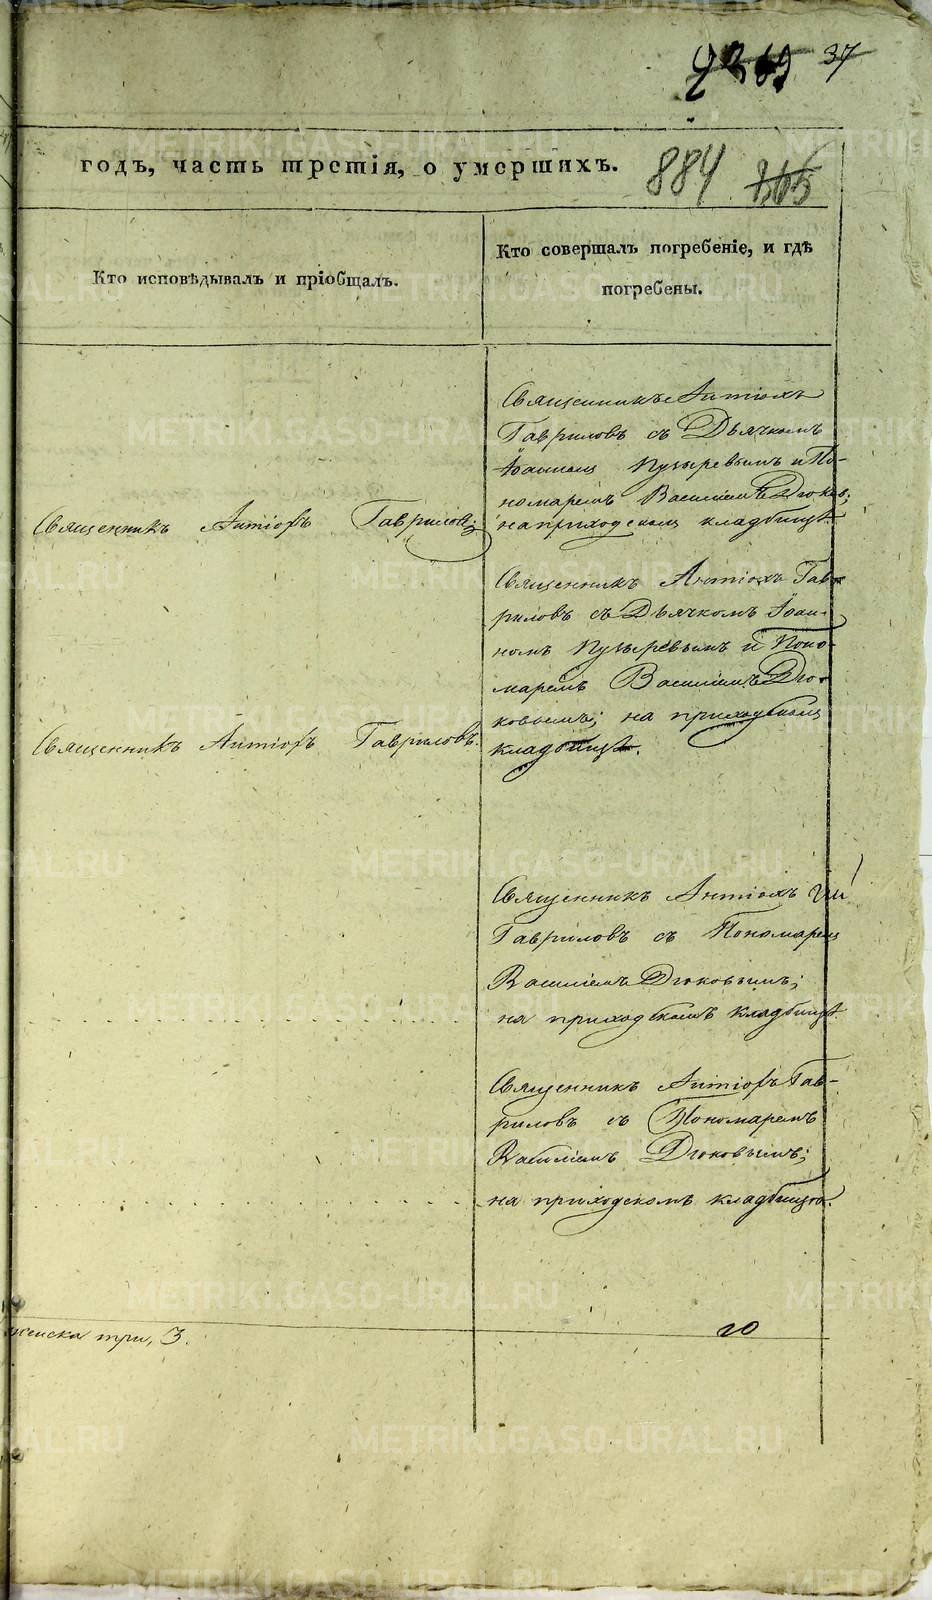 37
годъ, часть третія, о умершихъ.
884
365
Кто исповѣдывалъ и пріобщалъ.
Кто совершалъ погребеніе, и гдѣ
погребены.
Священникъ Антіохъ Гавриловъ;
Священникъ Антіохъ
Гавриловъ съ Дьячкомъ
Іоанномъ Пузыревымъ и По-
номаремъ Василіемъ Дюков;
на приходскомъ кладбищѣ.
Священникъ Антіохъ Гавриловъ.
Священникъ Антіохъ Гав-
риловъ съ Дьячкомъ Іоан-
номъ Пузыревымъ и Поно-
маремъ Василіемъ Дю-
ковымъ; на приходскомъ
кладбищѣ.
Священникъ Антіохъ
Гавриловъ съ Пономаремъ
Василіемъ Дюковымъ;
на приходскомъ кладбищѣ
Священникъ Антіохъ Гав-
риловъ съ Пономаремъ
Василіемъ Дюковымъ;
на приходскомъ кладбищѣ.
женска три, 3.
METRIKI.GASO-URAL.RU